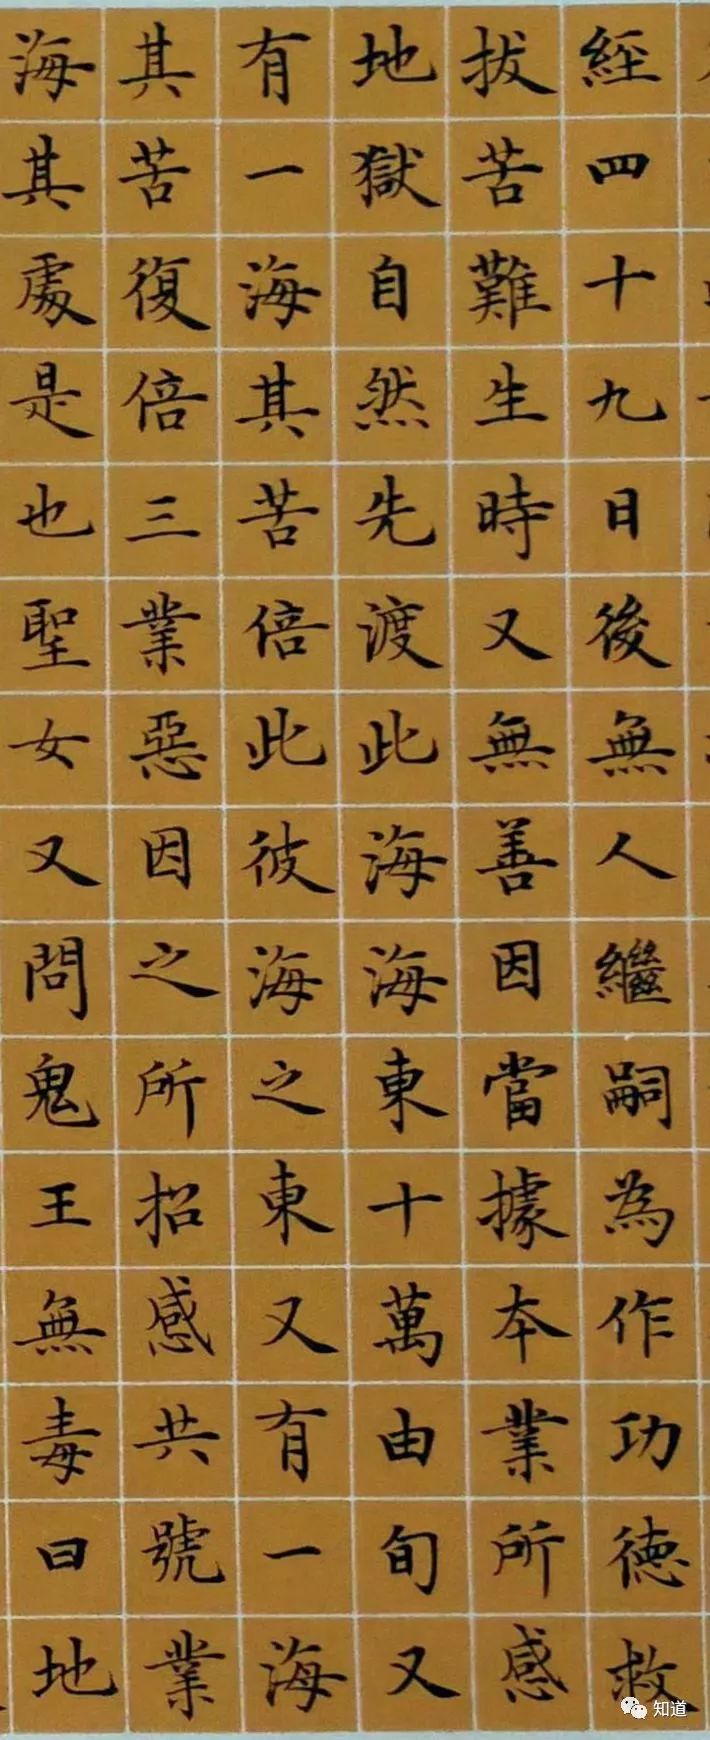 經四十九日後無人繼嗣為作功德救
拔苦難生時又無善因當據本業所感
地獄自然先渡此海海東十萬由旬又
有一海其苦倍此彼海之東又有一海
其苦復倍三業惡因之所招感共號業
海其處是也聖女又問鬼王無毒曰地
知道